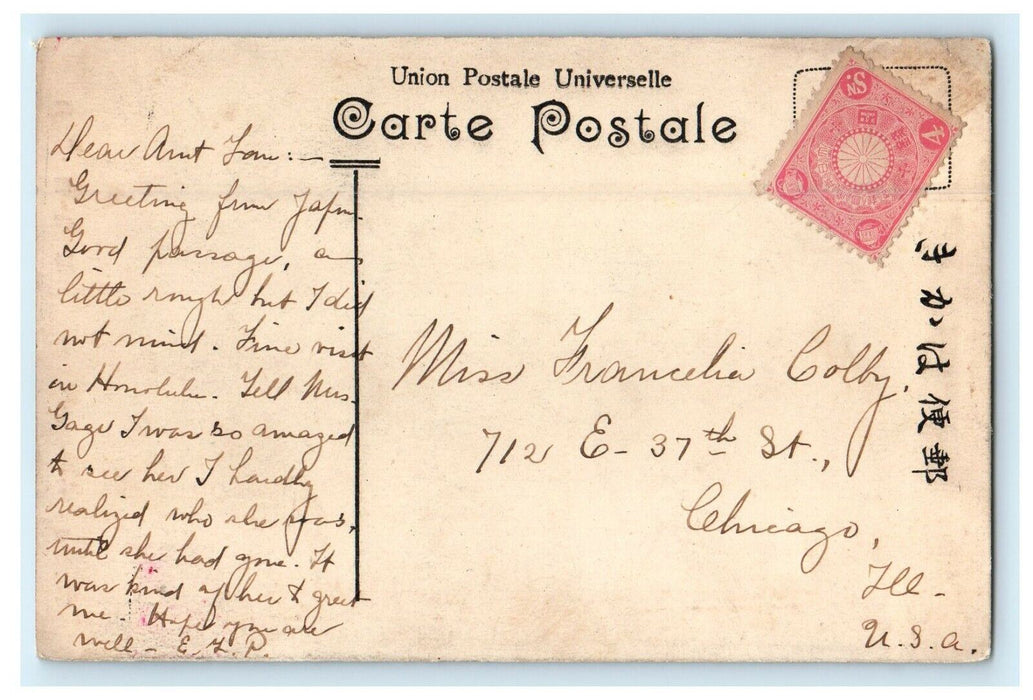 Union Postale Universelle
Carte Postale
Dear Aunt Fan:—
Greeting from Japan
Good passage, a
little rough but I did
not mind. Fine visit
in Honolulu. Tell Mrs.
Gage I was so amazed
to see her I hardly
realized who she was,
until she had gone. It
was kind of her to greet
me. Hope you are
well - E. L. P.
Miss Francelia Colby,
712 E- 37th St.,
Chicago,
Ill-
U.S.A.
きかは便郵